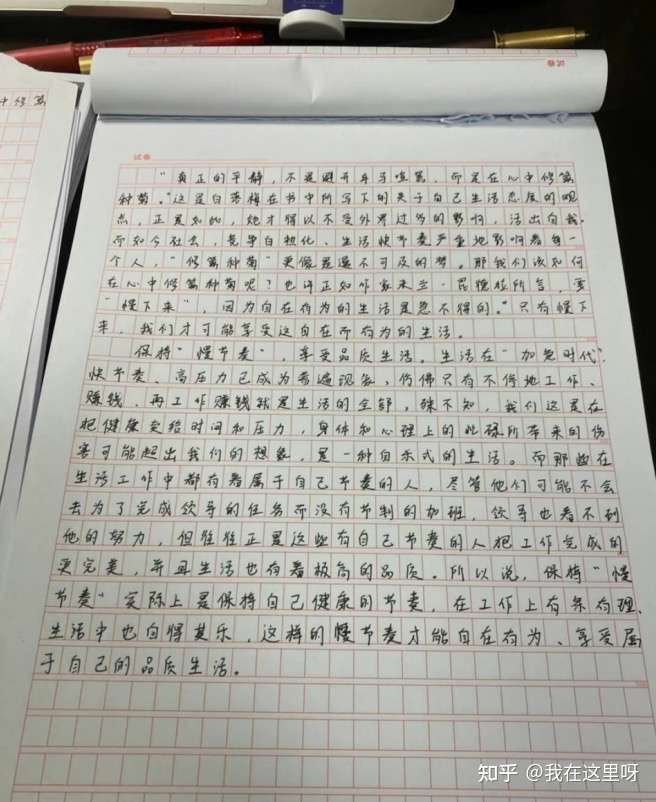 试卷
中修篱
"真正的平静,不是避开车马喧嚣,而是在心中修篱
种菊。"这是白落梅在书中所写下的关于自己生活态度的观
点,正是如此,她才得以不受外界过多的影响,活出自我。
而如今社会,竞争白热化、生活快节奏严重地影响着每一
个人,"修篱种菊"更像是遥不可及的梦。那我们该如何
在心中修篱种菊呢?也许正如作家米兰·昆德拉所言,要
"慢下来",因为自在有为的生活是急不得的。"只有慢下
来,我们才可能享受这自在而有为的生活。
保持"慢节奏",享受品质生活。生活在"加急时代",
快节奏、高压力已成为普遍现象,仿佛只有不停地工作、
赚钱、再工作赚钱就是生活的全部。殊不知,我们这是在
把健康交给时间和压力,身体和心理上的此疾所带来的伤
害可能超出我们的想象,是一种自杀式的生活。而那些在
生活工作中都有着属于自己节奏的人,尽管他们可能不会
去为了完成领导的任务而没有节制的加班,领导也看不到
他的努力,但往往正是这些有自己节奏的人把工作完成的
更完美,并且生活也有着极高的品质。所以说,保持"慢
节奏"实际上是保持自己健康的节奏,在工作上有条有理、
生活中也自得其乐,这样的慢节奏才能自在有为、享受属
于自己的品质生活。
知乎 @我在这里呀